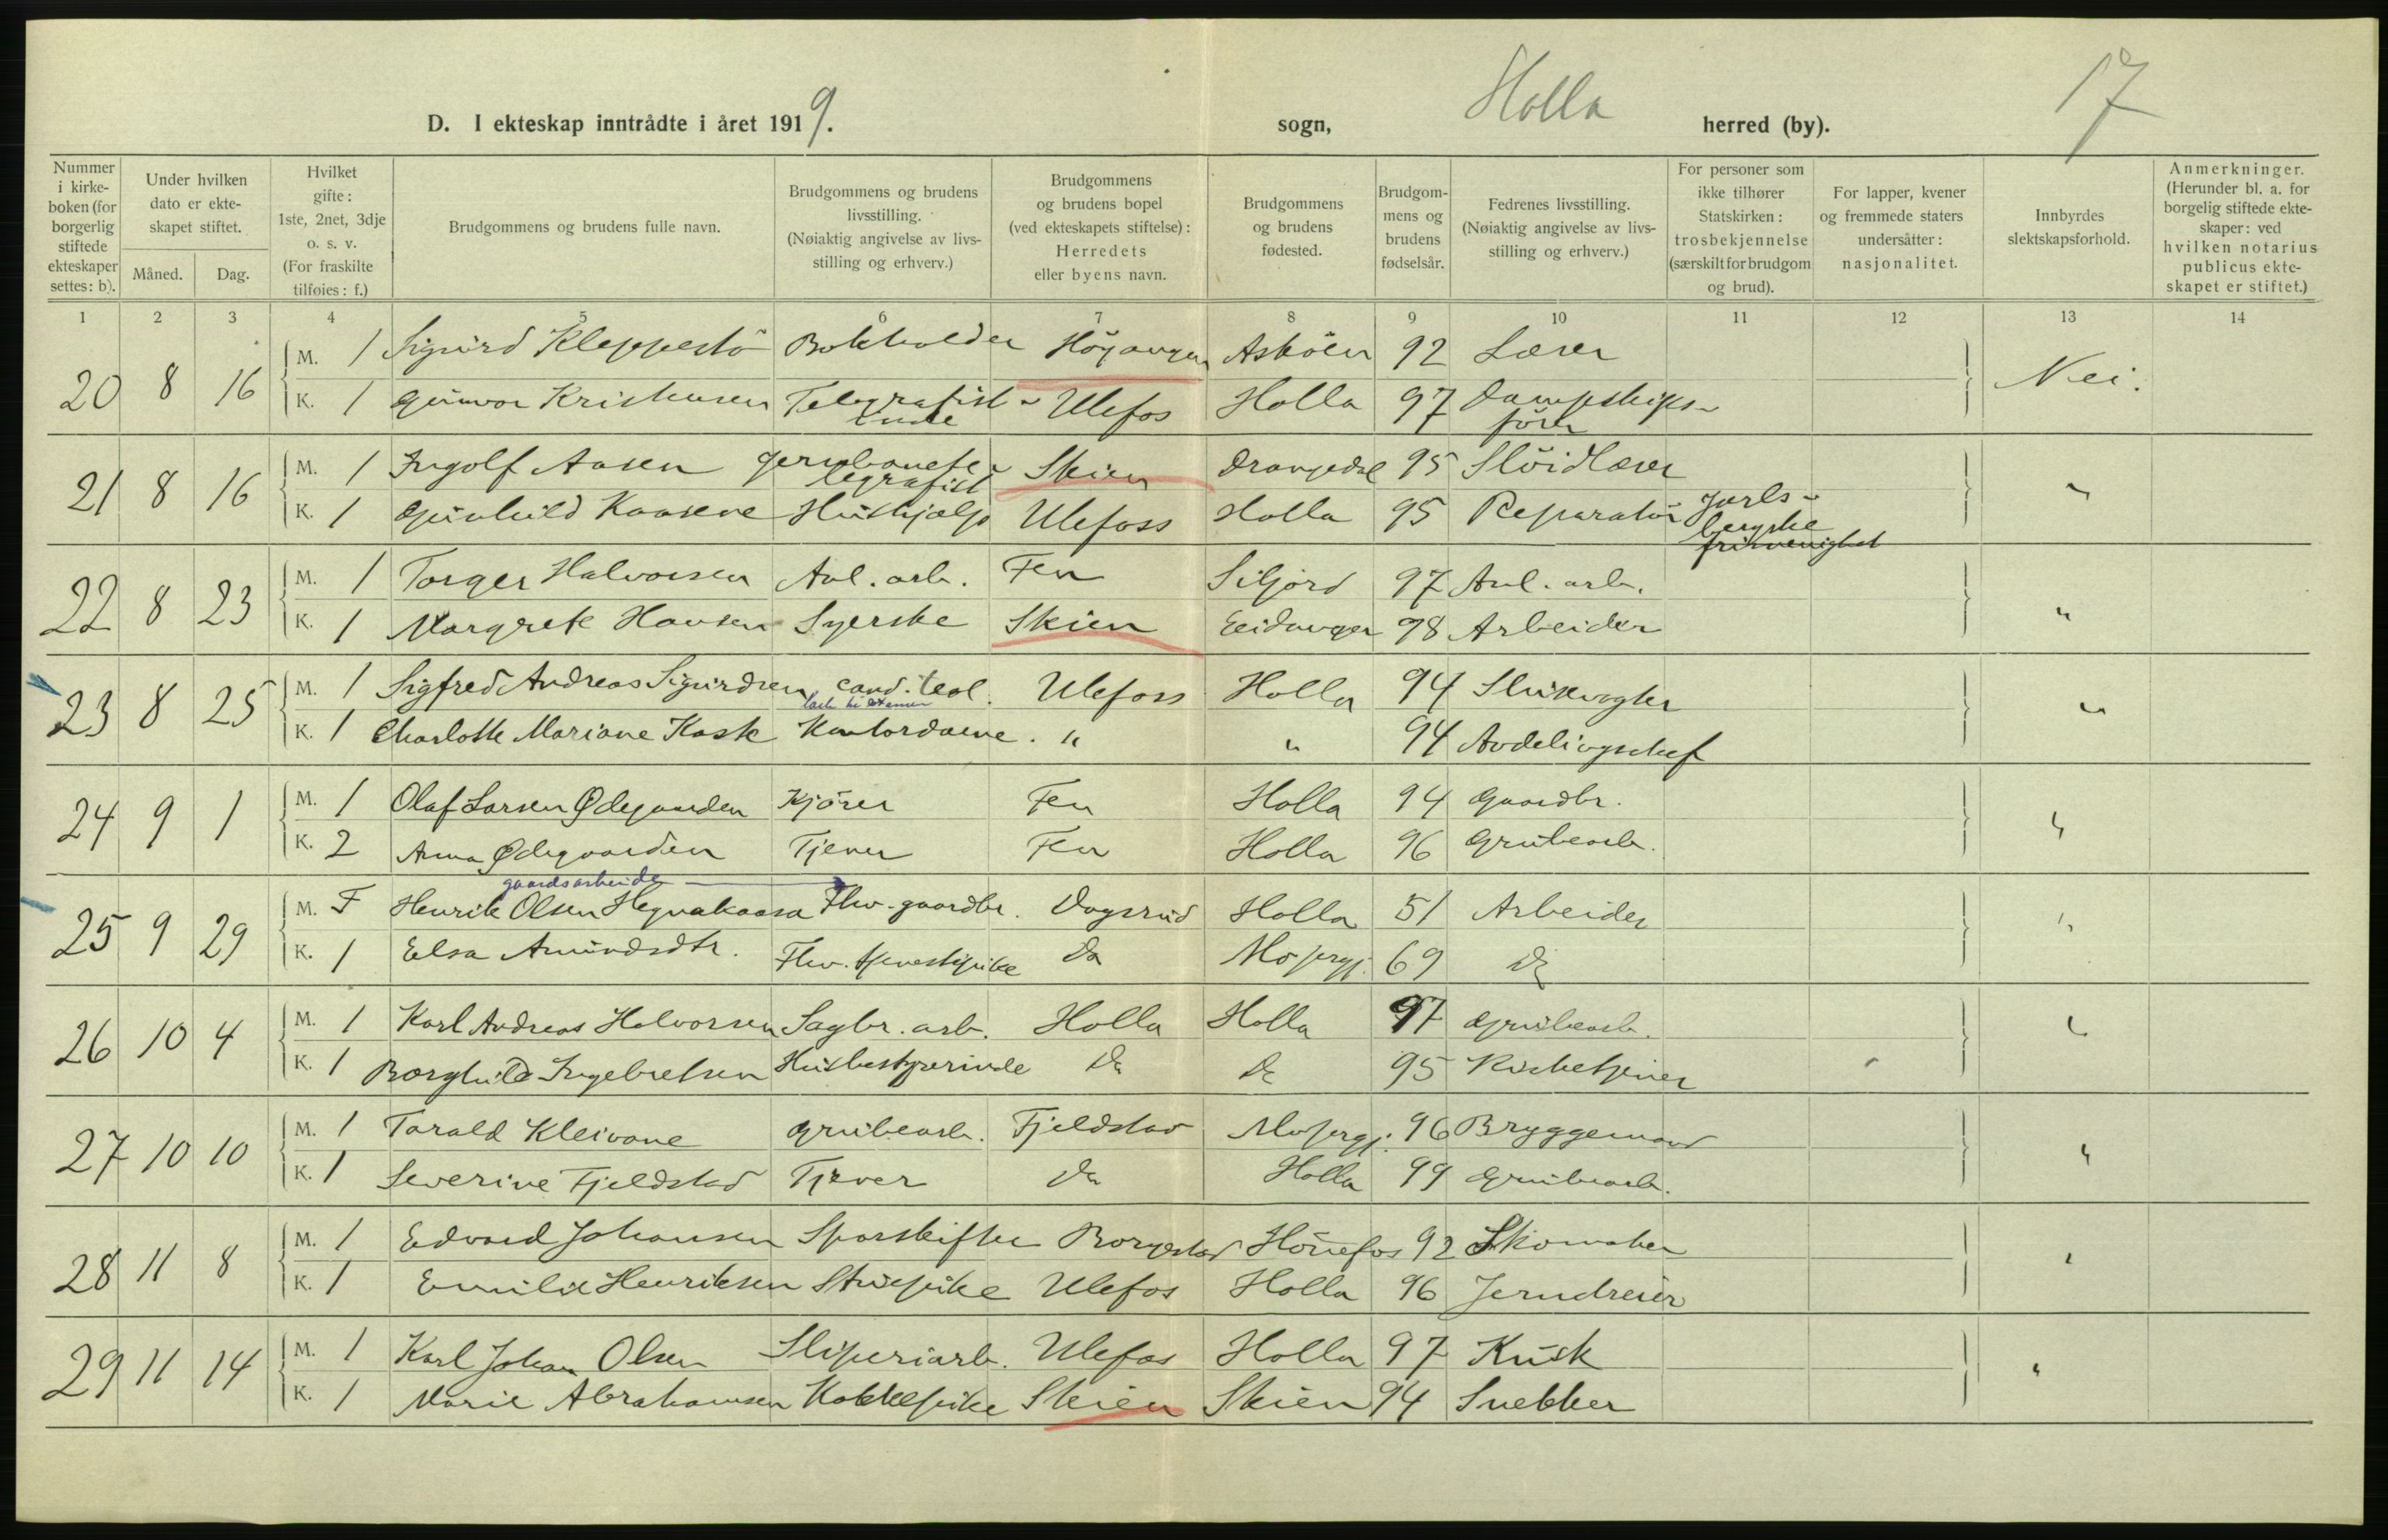 D. I ekteskap inntrådte i året 1919. sogn, Holla herred (by). 17
Nummer i kirkeboken (for borgerlig stiftede ekteskaper settes: b).
Under hvilken dato er ekteskapet stiftet. Måned. Dag.
Hvilket gifte: 1ste, 2net, 3dje o. s. v. (For fraskilte tilføies: f.)
Brudgommens og brudens fulle navn.
Brudgommens og brudens livsstilling. (Nøiaktig angivelse av livsstilling og erhverv.)
Brudgommens og brudens bopel (ved ekteskapets stiftelse): Herredets eller byens navn.
Brudgommens og brudens fødested.
Brudgommens og brudens fødselsår.
Fedrenes livsstilling. (Nøiaktig angivelse av livsstilling og erhverv.)
For personer som ikke tilhører Statskirken: trosbekjennelse (særskilt for brudgom og brud).
For lapper, kvener og fremmede staters undersåtter: nasjonalitet.
Innbyrdes slektskapsforhold.
Anmerkninger. (Herunder bl. a. for borgelig stiftede ekteskaper: ved hvilken notarius publicus ekteskapet er stiftet.)
1 2 3 4 5 6 7 8 9 10 11 12 13 14
20 8 16 M. 1 Sigurd Kleppestö Bokholder Höyanger Asköen 92 Lærer Nei.
K. 1 Gunvor Kristensen Telegrafistinde Ulefos Holla 97 Dampskipsförer
21 8 16 M. 1 Ingolf Aasen Jernbanetelegrafist Skien Drangedal 95 Slöidlærer "
K. 1 Gunhild Kaasene Hushjælp Ulefoss Holla 95 Reparatör Jarlsbergske frimenighet
22 8 23 M. 1 Torger Halvorsen Anl. arb. Fen Siljord 97 Anl. arb. "
K. 1 Margrete Hansen Syerske Skien Eidanger 98 Arbeider
23 8 25 M. 1 Sigfred Andreas Sigurdsen cand. teol. Ulefoss Holla 94 "
K. 1 Charlotte Mariane Kaste Kontordame " " 94 Avdelingschef
24 9 1 M. 1 Olaf Larsen Ødegaarden Kjörer Fen Holla 94 Gaardbr. "
K. 2 Anna Ødegaarden Tjener Fen Holla 96 Grubearb.
gaardsarbeider
25 9 29 M. F Henrik Olsen Hegnakaasa Fhv. gaardbr. Dagsrud Holla 51 Arbeider "
K. 1 Elsa Amundsdtr. Fhv. tjenestepike Do Mo prgj. 69 Do
26 10 4 M. 1 Karl Andreas Halvorsen Sagbr. arb. Holla Holla 97 Grubearb. "
K. 1 Borghild Ingebretsen Husbestyrerinde Do Do 95 Kirketjener
27 10 10 M. 1 Tarald Kleivane Grubearb. Fjeldstad Mo prgj. 96 Bryggemand "
K. 1 Severine Fjeldstad Tjener Do Holla 99 Grubearb.
28 11 8 M. 1 Edvard Johansen Sporskifter Borgestad Hönefos 92 Skomaker "
K. 1 Emilie Henriksen Stuepike Ulefos Holla 96 Jerndreier
29 11 14 M. 1 Karl Johan Olsen Sliperiarb. Ulefos Holla 97 Kusk "
K. 1 Marie Abrahamsen Kokkepike Skien Skien 94 Snekker